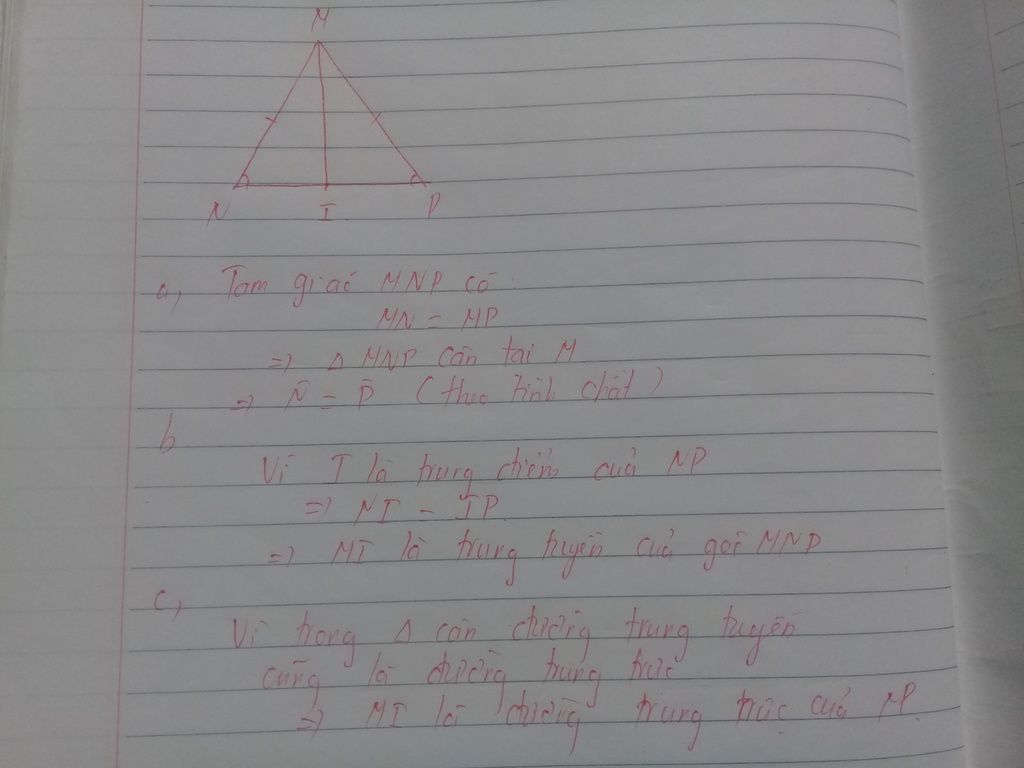 M
N I P
a, Tam giác MNP có
MN = MP
=> Δ MNP cân tại M
=> N̂ = P̂ (theo tính chất)
b
Vì I là trung điểm của NP
=> NI = IP
=> MI là trung tuyến của góc MNP
c,
Vì trong Δ cân đường trung tuyến
cũng là đường trung trực
=> MI là đường trung trực của NP